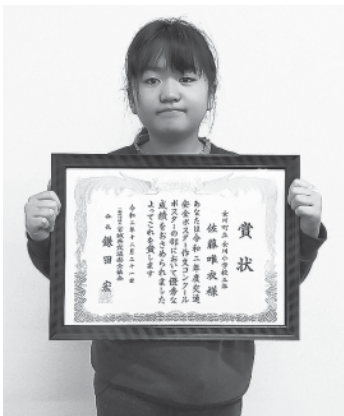 賞状
女川町立女川小学校五年
佐藤唯衣様
あなたは令和二年度交通
安全ポスター作文コンクール
ポスターの部において優秀な
成績をおさめられました
よってこれを賞します
令和二年十二月二十一日
宮城県交通安全協会
会長 鎌田宏